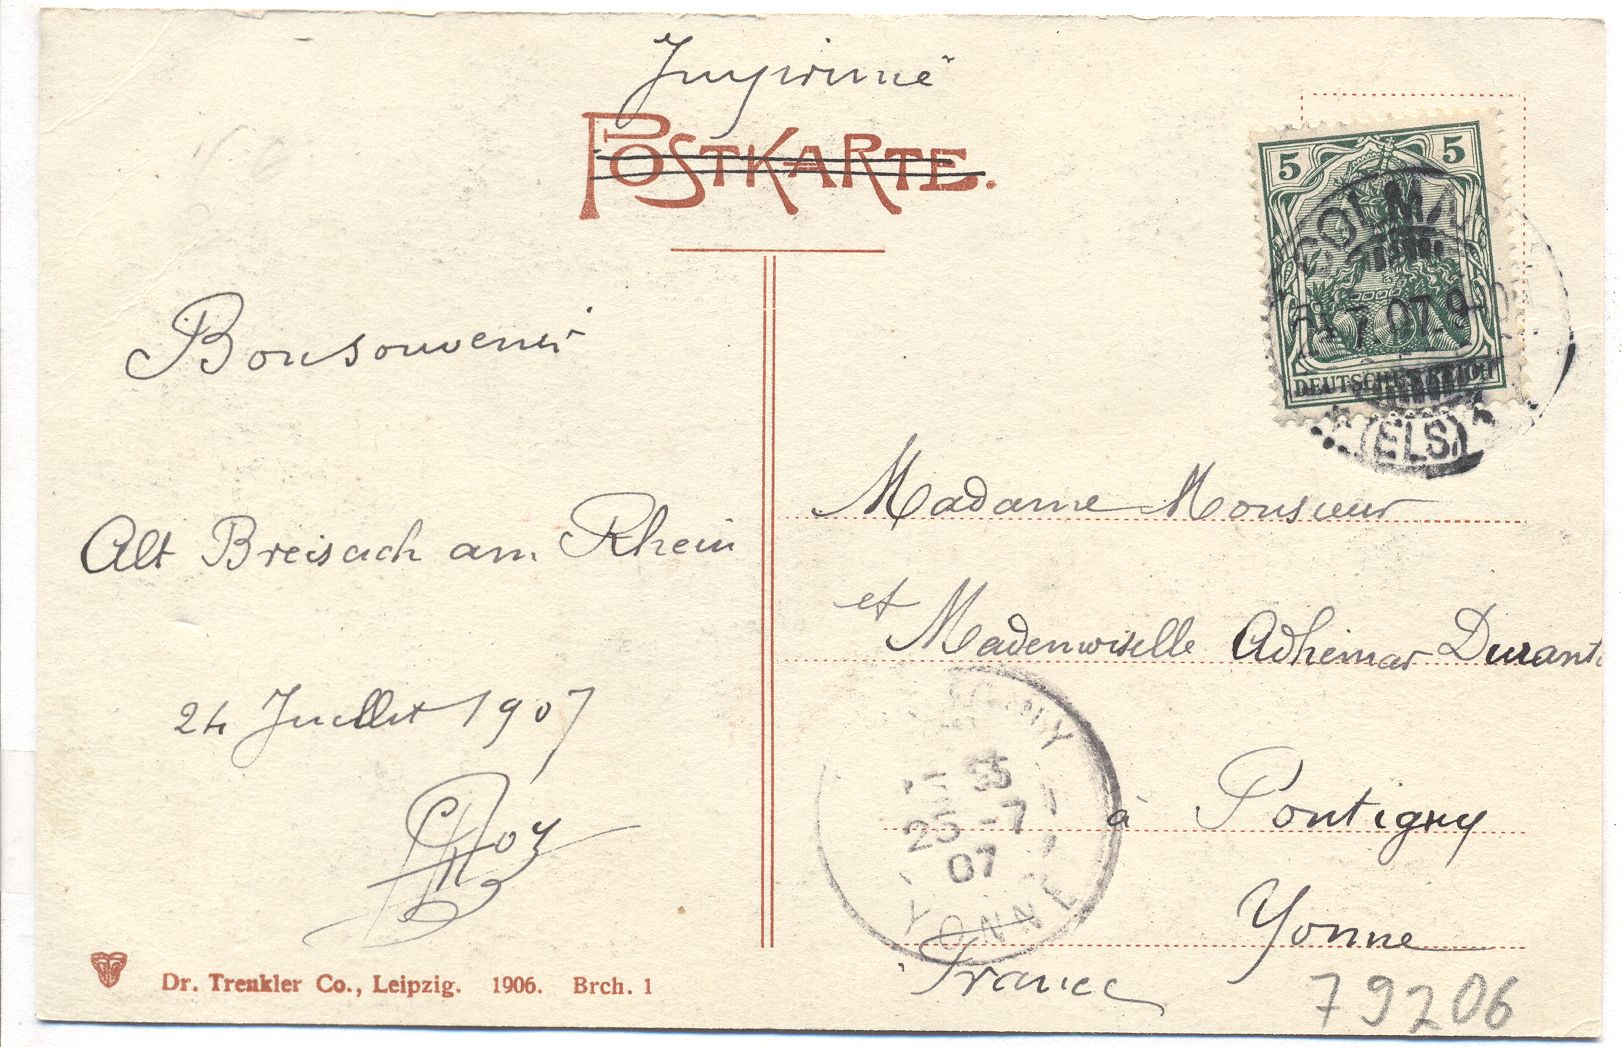 Imprimé
POSTKARTE.
5 5
COLMA
7.07.9-10
DEUTSCHES REICH
(ELS)
Bonsouvenir
Alt Breisach am Rhein
24 Juillet 1907
Madame Monsieur
et Mademoiselle Adhemar Durant
à Pontigny
Yonne
France
55
25-7
07
YONNE
79206
Dr. Trenkler Co., Leipzig. 1906. Brch. 1